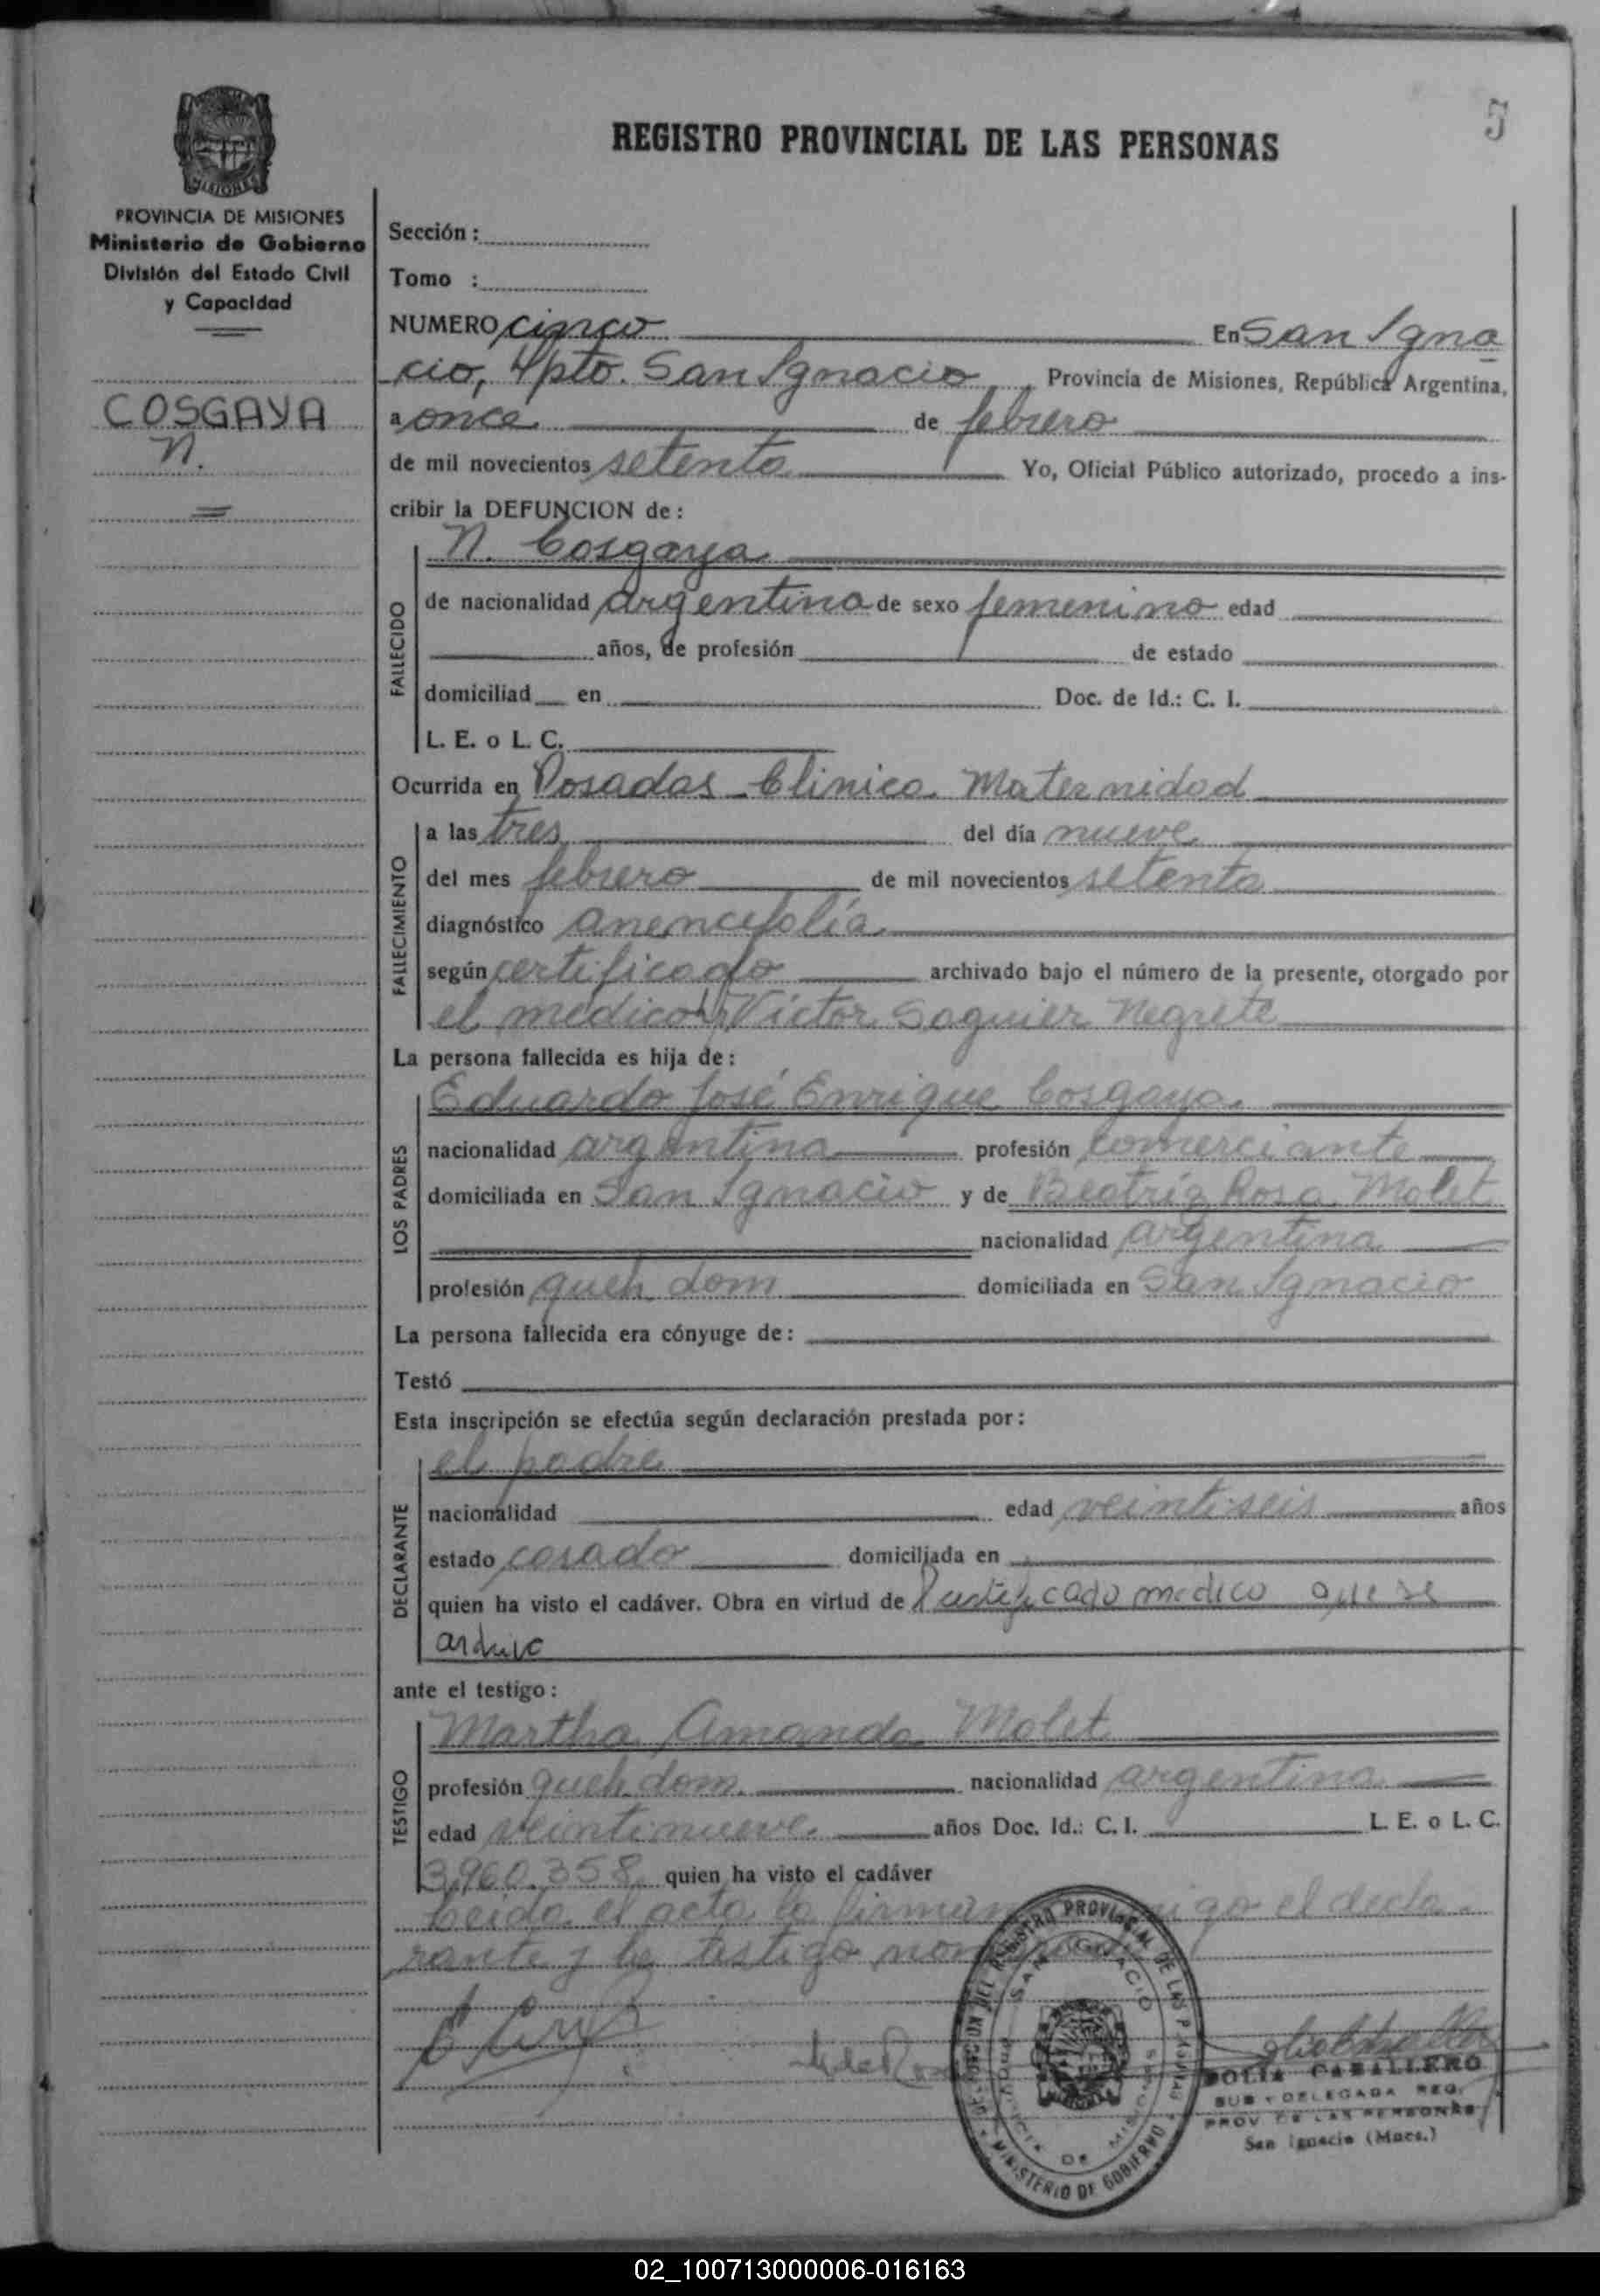 5
REGISTRO PROVINCIAL DE LAS PERSONAS
MISIONES
PROVINCIA DE MISIONES
Ministerio de Gobierno
División del Estado Civil
y Capacidad
COSGAYA
N.
Sección :
Tomo :
NUMERO cinco En San Igna
cio, Dpto. San Ignacio, Provincia de Misiones, República Argentina,
a once de febrero
de mil novecientos setenta Yo, Oficial Público autorizado, procedo a ins-
cribir la DEFUNCION de :
FALLECIDO
N. Cosgaya
de nacionalidad argentina de sexo femenino edad
años, de profesión de estado
domiciliad en Doc. de Id.: C. I.
L. E. o L. C.
Ocurrida en Posadas Clinica Maternidad
FALLECIMIENTO
a las tres del día nueve
del mes febrero de mil novecientos setenta
diagnóstico anencefalía
según certificado archivado bajo el número de la presente, otorgado por
el medico Víctor Saguier Negrete
La persona fallecida es hija de :
LOS PADRES
Eduardo José Enrique Cosgaya
nacionalidad argentina profesión comerciante
domiciliada en San Ignacio y de Beatriz Rosa Molet
nacionalidad argentina
profesión queh. dom domiciliada en San Ignacio
La persona fallecida era cónyuge de :
Testó
Esta inscripción se efectúa según declaración prestada por :
DECLARANTE
el padre
nacionalidad edad veintiseis años
estado casado domiciliada en
quien ha visto el cadáver. Obra en virtud de certificado medico que se
archivo
ante el testigo :
TESTIGO
Martha Amanda Molet
profesión queh. dom. nacionalidad argentina
edad veintinueve años Doc. Id.: C. I. L. E. o L. C.
3.960.358 quien ha visto el cadáver
Leida el acta la firman el decla
rante y la testigo
DEL REGISTRO PROVINCIAL DE LAS PERSONAS
SAN IGNACIO
PROVINCIA DE MISIONES
MINISTERIO DE GOBIERNO
CABALLERO
SUB - DELEGADA REG.
PROV. DE LAS PERSONAS
San Ignacio (Mnes.)
02_100713000006-016163